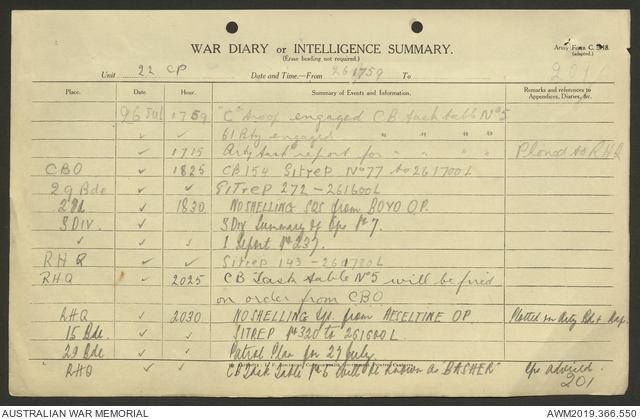 WAR DIARY or INTELLIGENCE SUMMARY.
(Erase heading not required.)
Army Form C. 2118.
(adapted.)
Unit 22 CP Date and Time.—From 261759 To
Place. Date. Hour. Summary of Events and Information. Remarks and references to Appendices, Diaries, &c.
26 Jul 1759 "C" Troop engaged CB task table No 5
✓ ✓ 61 Bty engaged " " " "
✓ 1715 Arty task report for " " " Phoned to RHQ
CBO ✓ 1825 CB 154 Sitrep No 77 to 261700L
29 Bde ✓ ✓ Sitrep 272 - 261600L
✓ 1830 NO SHELLING from BOYO OP.
3 DIV ✓ ✓ 3 Div Summary of Ops No 7.
✓ ✓ ✓ I Report No 237.
RHQ ✓ ✓ Sitrep 143 - 261730L
RHQ ✓ 2025 CB Task table No 5 will be fired
on order from CBO
RHQ ✓ 2030 NO SHELLING from HESELTINE OP Plotted on Arty Bd & Map.
15 Bde ✓ ✓ SITREP No 320 to 261600L.
29 Bde ✓ ✓ Patrol Plan for 27 July.
RHQ ✓ ✓ CB Task Table No 5 will be known as "BASHER" advised.
201
AUSTRALIAN WAR MEMORIAL AWM2019.366.550